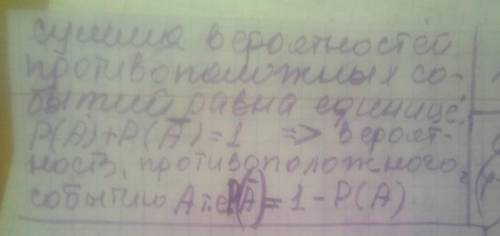 сумма вероятностей
противоположных со-
бытий равна единице.
P(A)+P(A̅)=1 => вероят-
ность, противоположного
событию A т.е P(A̅)=1-P(A)